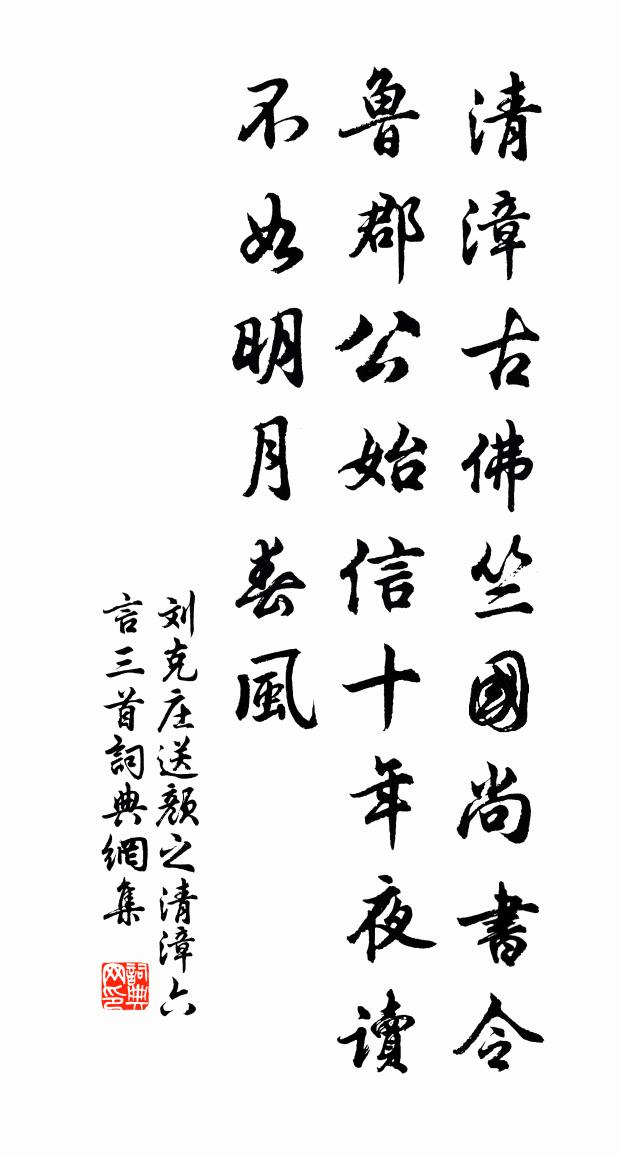 清漳古佛竺國尚書令
魯郡公始信十年夜讀
不如明月春風
刘克庄送顏之清漳六
言三首詞典網集
詞典
网印